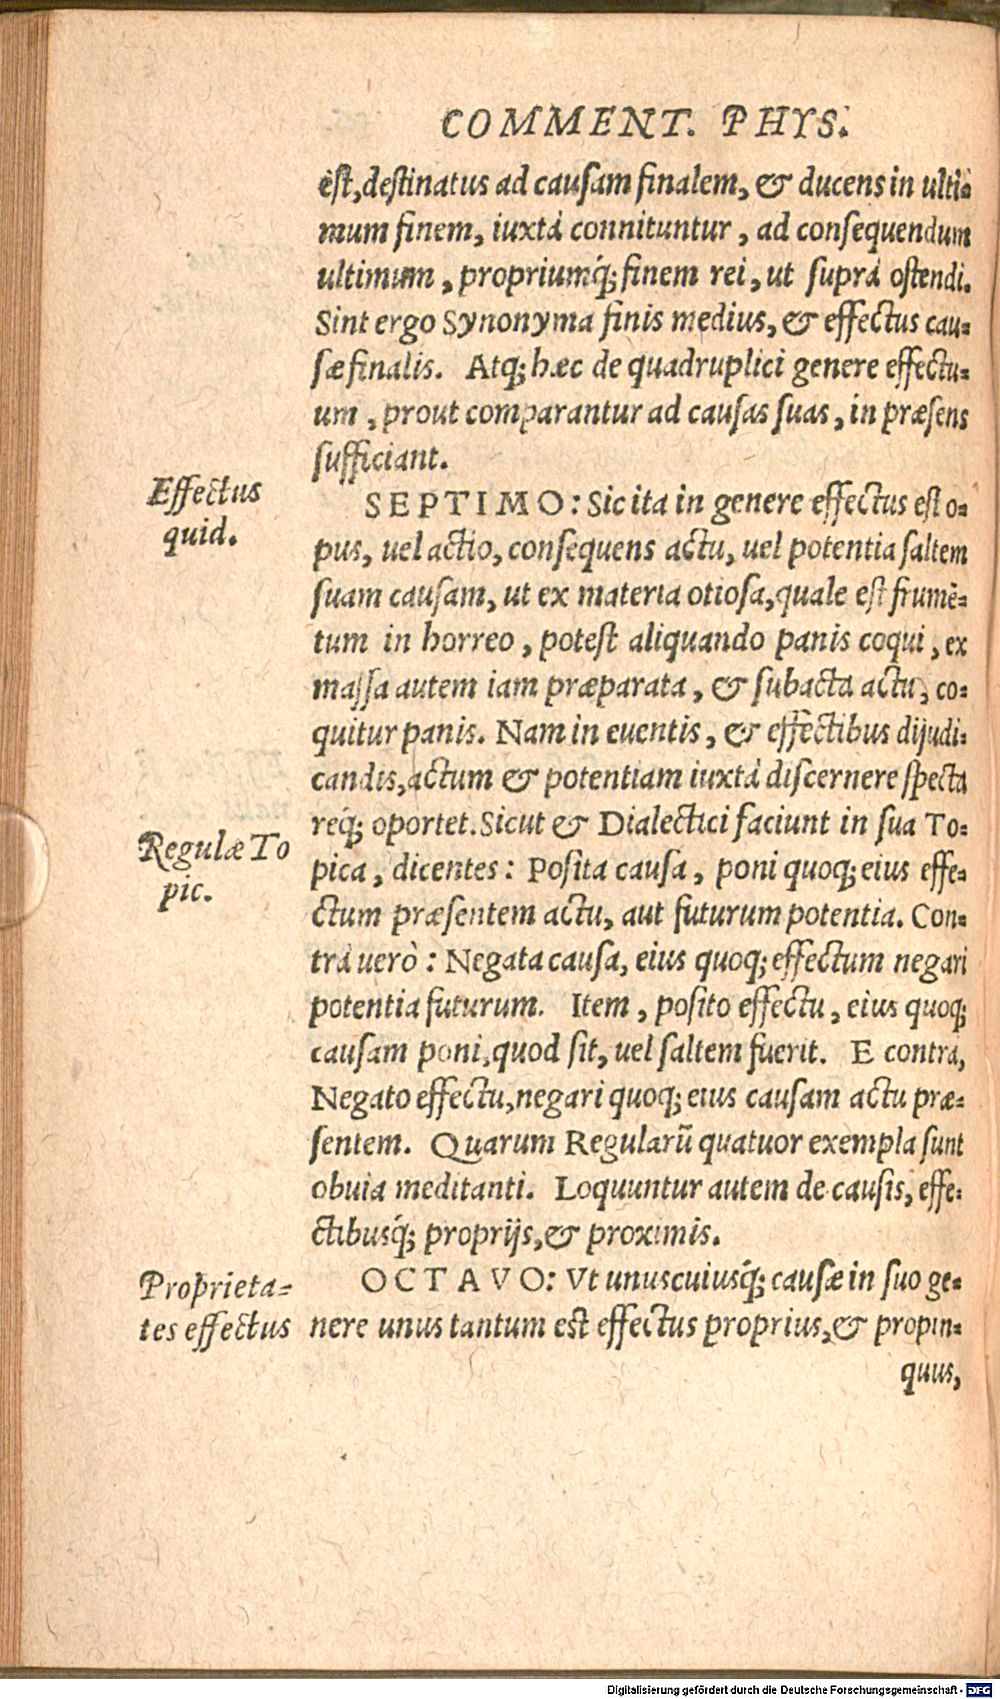 COMMENT. PHYS.
est, destinatus ad causam finalem, & ducens in ulti-
mum finem, iuxtà connituntur, ad consequendum
ultimum, propriumq́; finem rei, ut suprà ostendi.
Sint ergo Synonyma finis medius, & effectus cau-
sæ finalis. Atq; hæc de quadruplici genere effectu-
um, prout comparantur ad causas suas, in præsens
sufficiant.
Effectus
quid.
SEPTIMO: Sic ita in genere effectus est o-
pus, uel actio, consequens actu, uel potentia saltem
suam causam, ut ex materia otiosa, quale est frumē-
tum in horreo, potest aliquando panis coqui, ex
massa autem iam præparata, & subacta actu, co-
quitur panis. Nam in euentis, & effectibus dijudi-
candis, actum & potentiam iuxtà discernere specta
req́; oportet. Sicut & Dialectici faciunt in sua To-
Regulæ To
pic.
pica, dicentes: Posita causa, poni quoq; eius effe-
ctum præsentem actu, aut futurum potentia. Con-
trà uerò: Negata causa, eius quoq; effectum negari
potentia futurum. Item, posito effectu, eius quoq;
causam poni, quod sit, uel saltem fuerit. E contra,
Negato effectu, negari quoq; eius causam actu præ-
sentem. Quarum Regularū quatuor exempla sunt
obuia meditanti. Loquuntur autem de causis, effe-
ctibusq́; proprijs, & proximis.
Proprieta-
tes effectus
OCTAVO: Vt unuscuiusq́; causæ in suo ge-
nere unus tantum est effectus proprius, & propin-
quus,
Digitalisierung gefördert durch die Deutsche Forschungsgemeinschaft - DFG